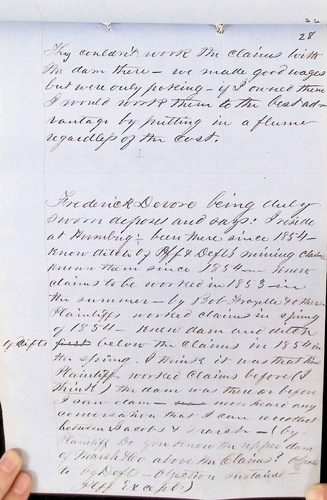 28
They couldnt work the claims with
the dam there – we made good wages
but were only poking – if I owned them
I would work them to the best ad-
vantage by putting in a flume
regardless of the cost.
Frederick Devore being duly
sworn deposes and says: I reside
at Humbug – been there since 1854 –
know ditch of Plff & Defts mining claims
known them since 1854 – knew
claims to be worked in 1853 – in
the summer – by Bob & others
Plaintiffs worked claims in spring
of 1854 – knew dam and ditch
of Defts below the claims in 1854 in
the spring. I think it was that the
Plaintiff worked claims before (I
think) the dam was there or before
I saw dam – never heard any
conversation that I can recollect
between Jacobs & Marsh – (by
Plaintiff Do you know the upper dam
of Marsh &Co above the claims?
to by Defts – Objection sustained
Plff Except)